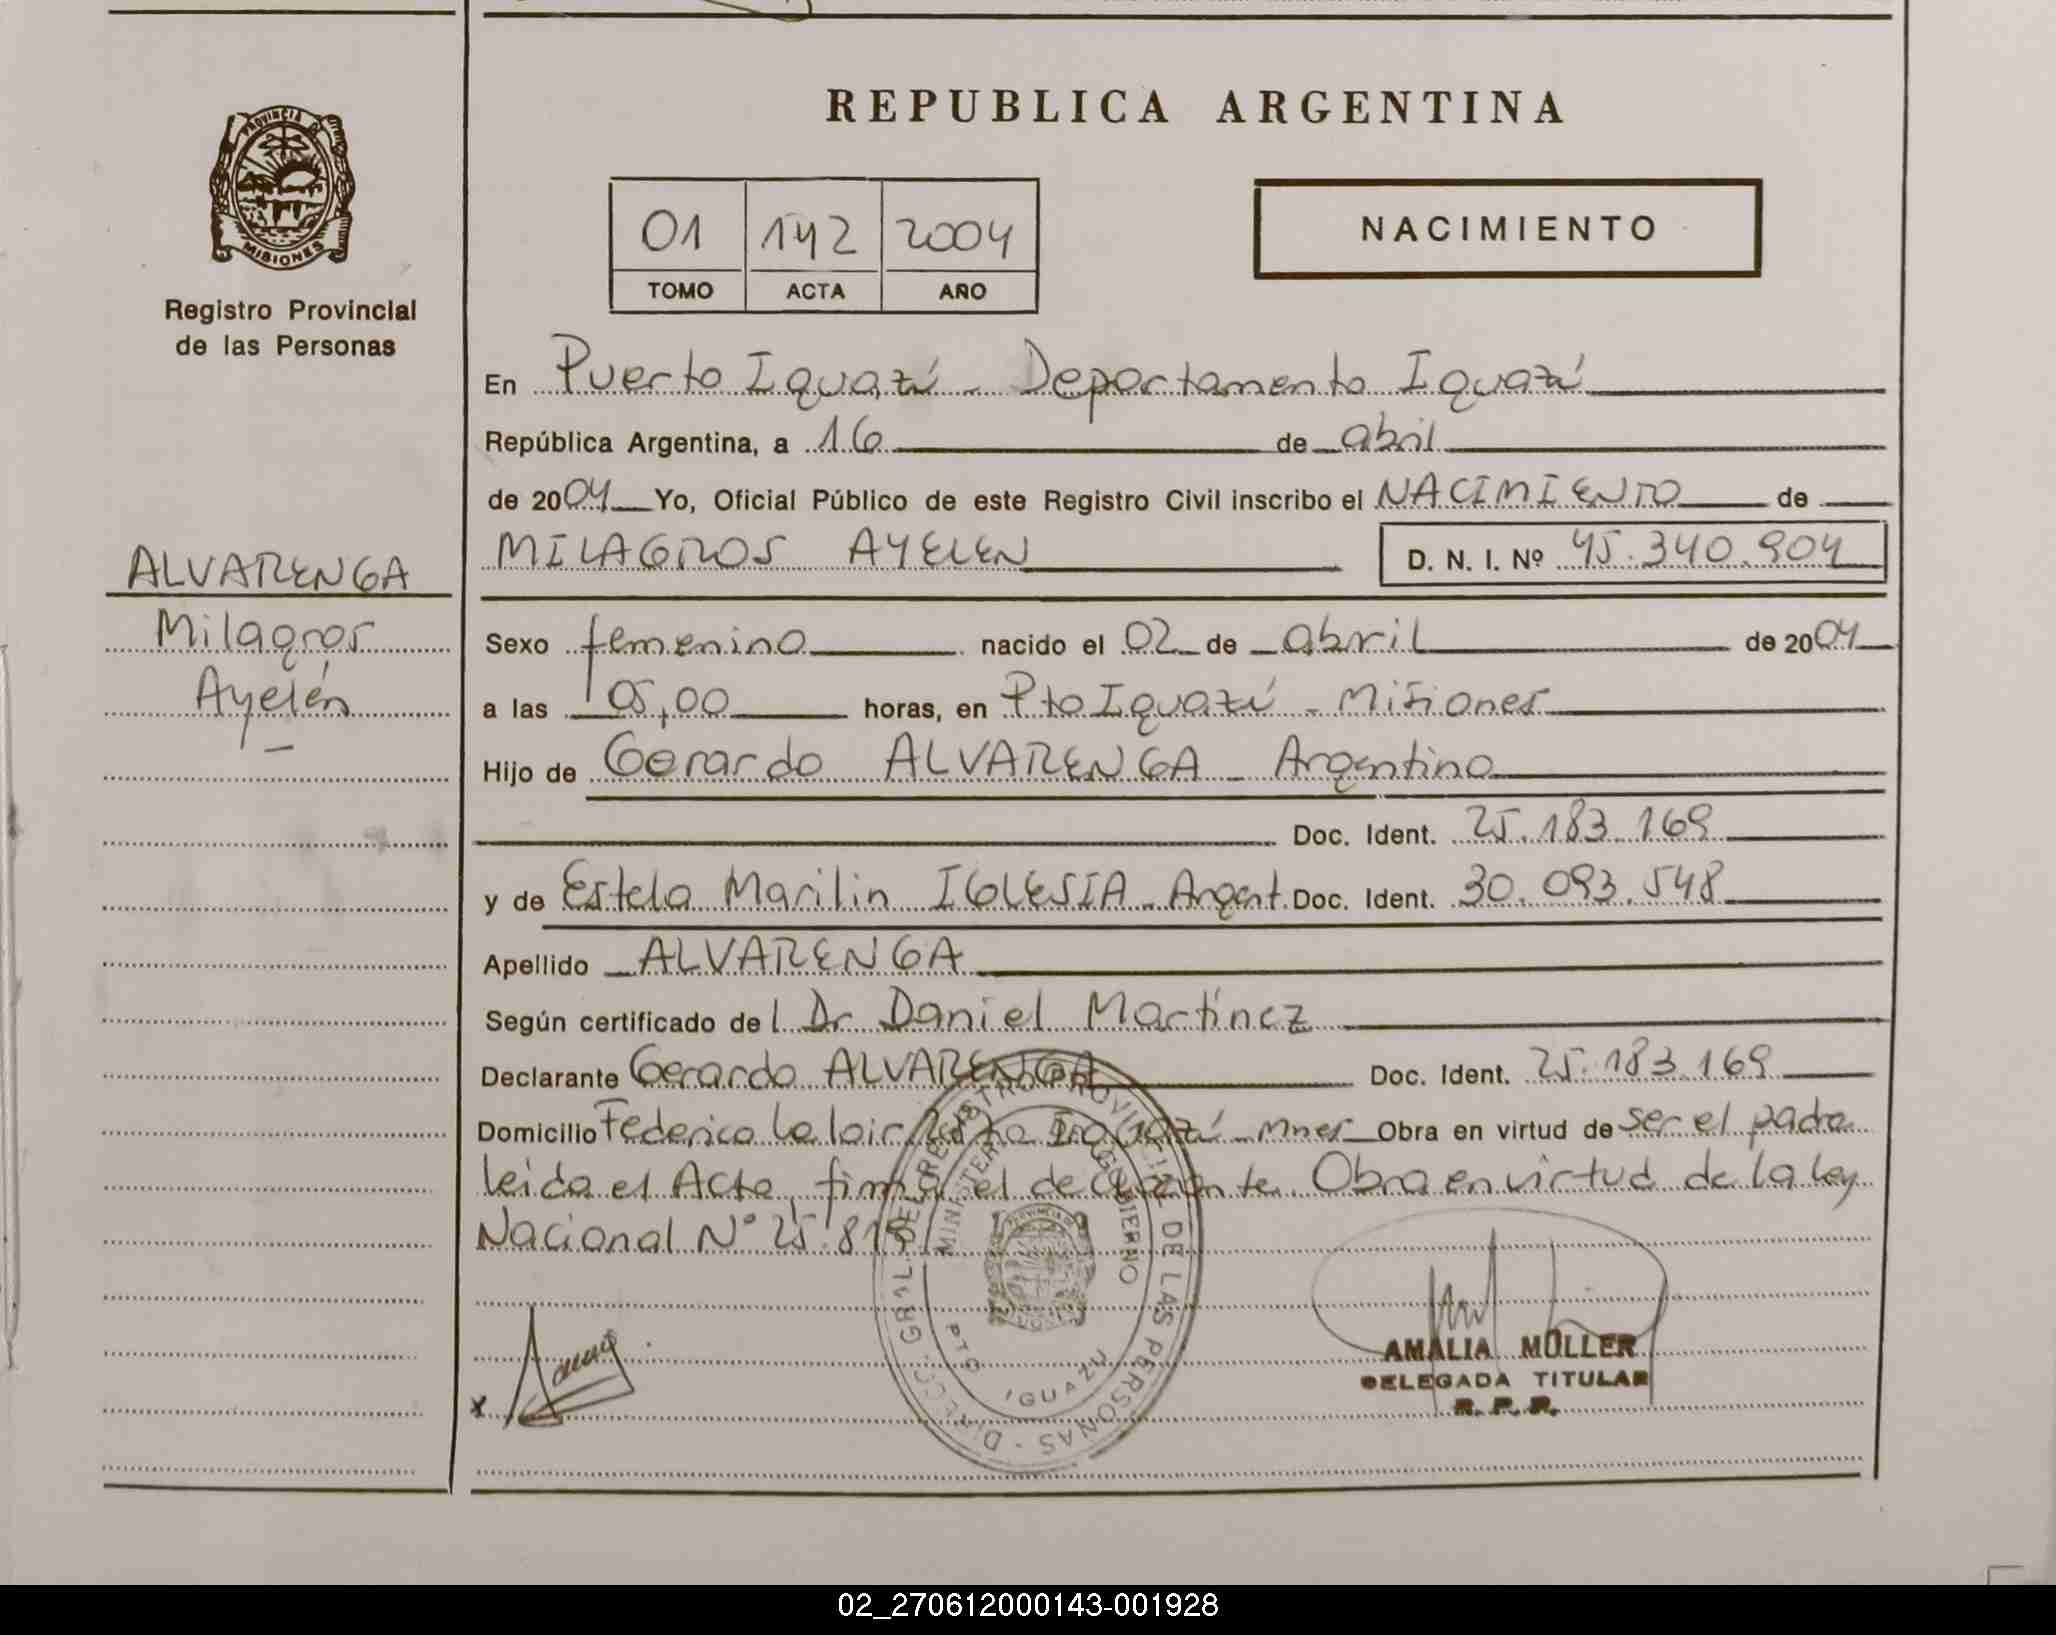 REPUBLICA ARGENTINA
PROVINCIA DE
MISIONES
Registro Provincial
de las Personas
01 142 2004
TOMO ACTA AÑO
NACIMIENTO
En Puerto Iguazú - Departamento Iguazú
República Argentina, a 16 de abril
de 2004 Yo, Oficial Público de este Registro Civil inscribo el NACIMIENTO de
MILAGROS AYELEN D. N. I. Nº 45.340.904
ALVARENGA
Milagros
Ayelén
Sexo femenino nacido el 02 de abril de 2004
a las 05,00 horas, en Pto Iguazú - Misiones
Hijo de Gerardo ALVARENGA - Argentino
Doc. Ident. 25.183.169
y de Estela Marilin IGLESIA - Argent. Doc. Ident. 30.093.548
Apellido ALVARENGA
Según certificado del Dr Daniel Martínez
Declarante Gerardo ALVARENGA Doc. Ident. 25.183.169
Domicilio Federico Leloir Iguazú - Mnes Obra en virtud de ser el padre
leida el Acta, firma el declarante. Obra en virtud de la ley
Nacional N° 25.819
DIRECC. GRAL. DEL REGISTRO PROVINCIAL DE LAS PERSONAS
MINISTERIO GOBIERNO
PTO IGUAZU
AMALIA MULLER
DELEGADA TITULAR
R. P. P.
02_270612000143-001928